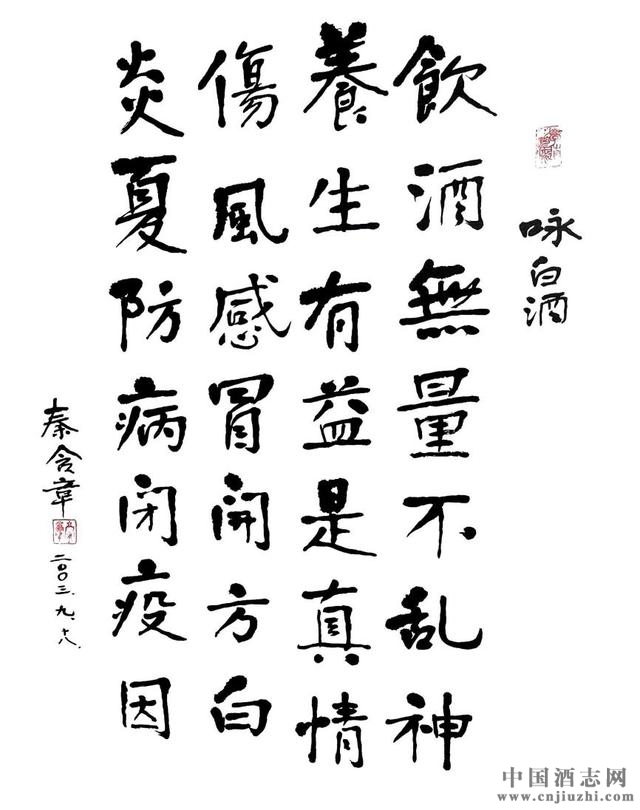 咏白酒
飲酒無量不乱神
養生有益是真情
傷風感冒開方白
炎夏防病闭疫因
秦含章
二〇〇三.九.十八.
中国酒志网
www.cnjiuzhi.com